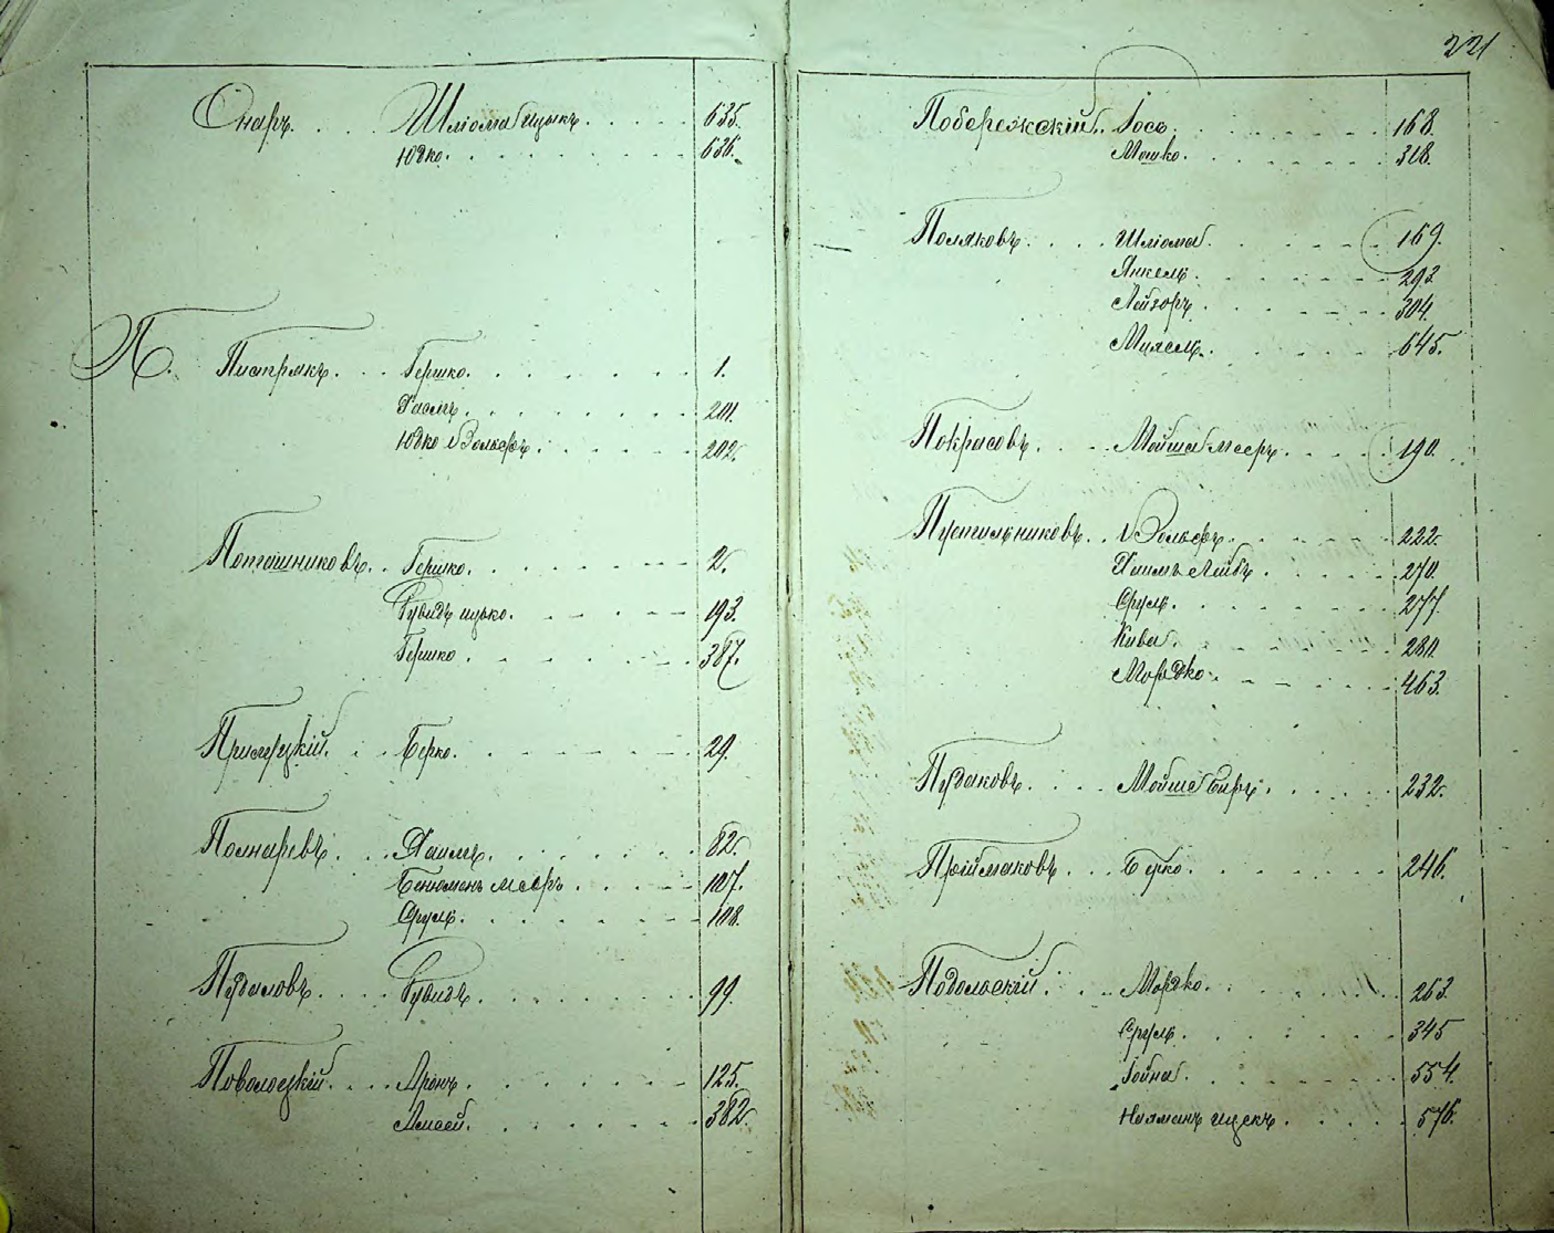 Онаръ. Шліома Ицыкъ. 635.
Юдко. 636.
П. Пистрякъ. Гершко. 1.
Хаимъ. 201.
Юдко Вольфъ. 202.
Поташниковъ. Гершко. 2.
Рувидъ ицько. 193.
Гершко 387.
Берко. 29.
Понаревъ. Хаимъ. 82.
Бенюменъ Мееръ 107.
Сруль. 108.
Пудаловъ. Рувидъ. 99.
Поволоцкій. Аронъ. 125.
382.
221
Побережскій. Іось. 168.
Мошко. 318.
Поляковъ. Шліома. 169.
Янкель. 293.
Лейзоръ. 304.
645.
Покрасовъ. Мойша Мееръ. 190.
Пустильниковъ. Вольфъ. 222.
Хаимъ Лейбъ. 270.
Сруль. 277.
Кива. 280.
Мордко. 463.
Пудаковъ. Мойше Беръ. 232.
Приймаковъ. Берко. 246.
Подольскій. Мордко. 263.
Сруль. 345
Гойна. 554.
Нахманъ ицекъ. 576.